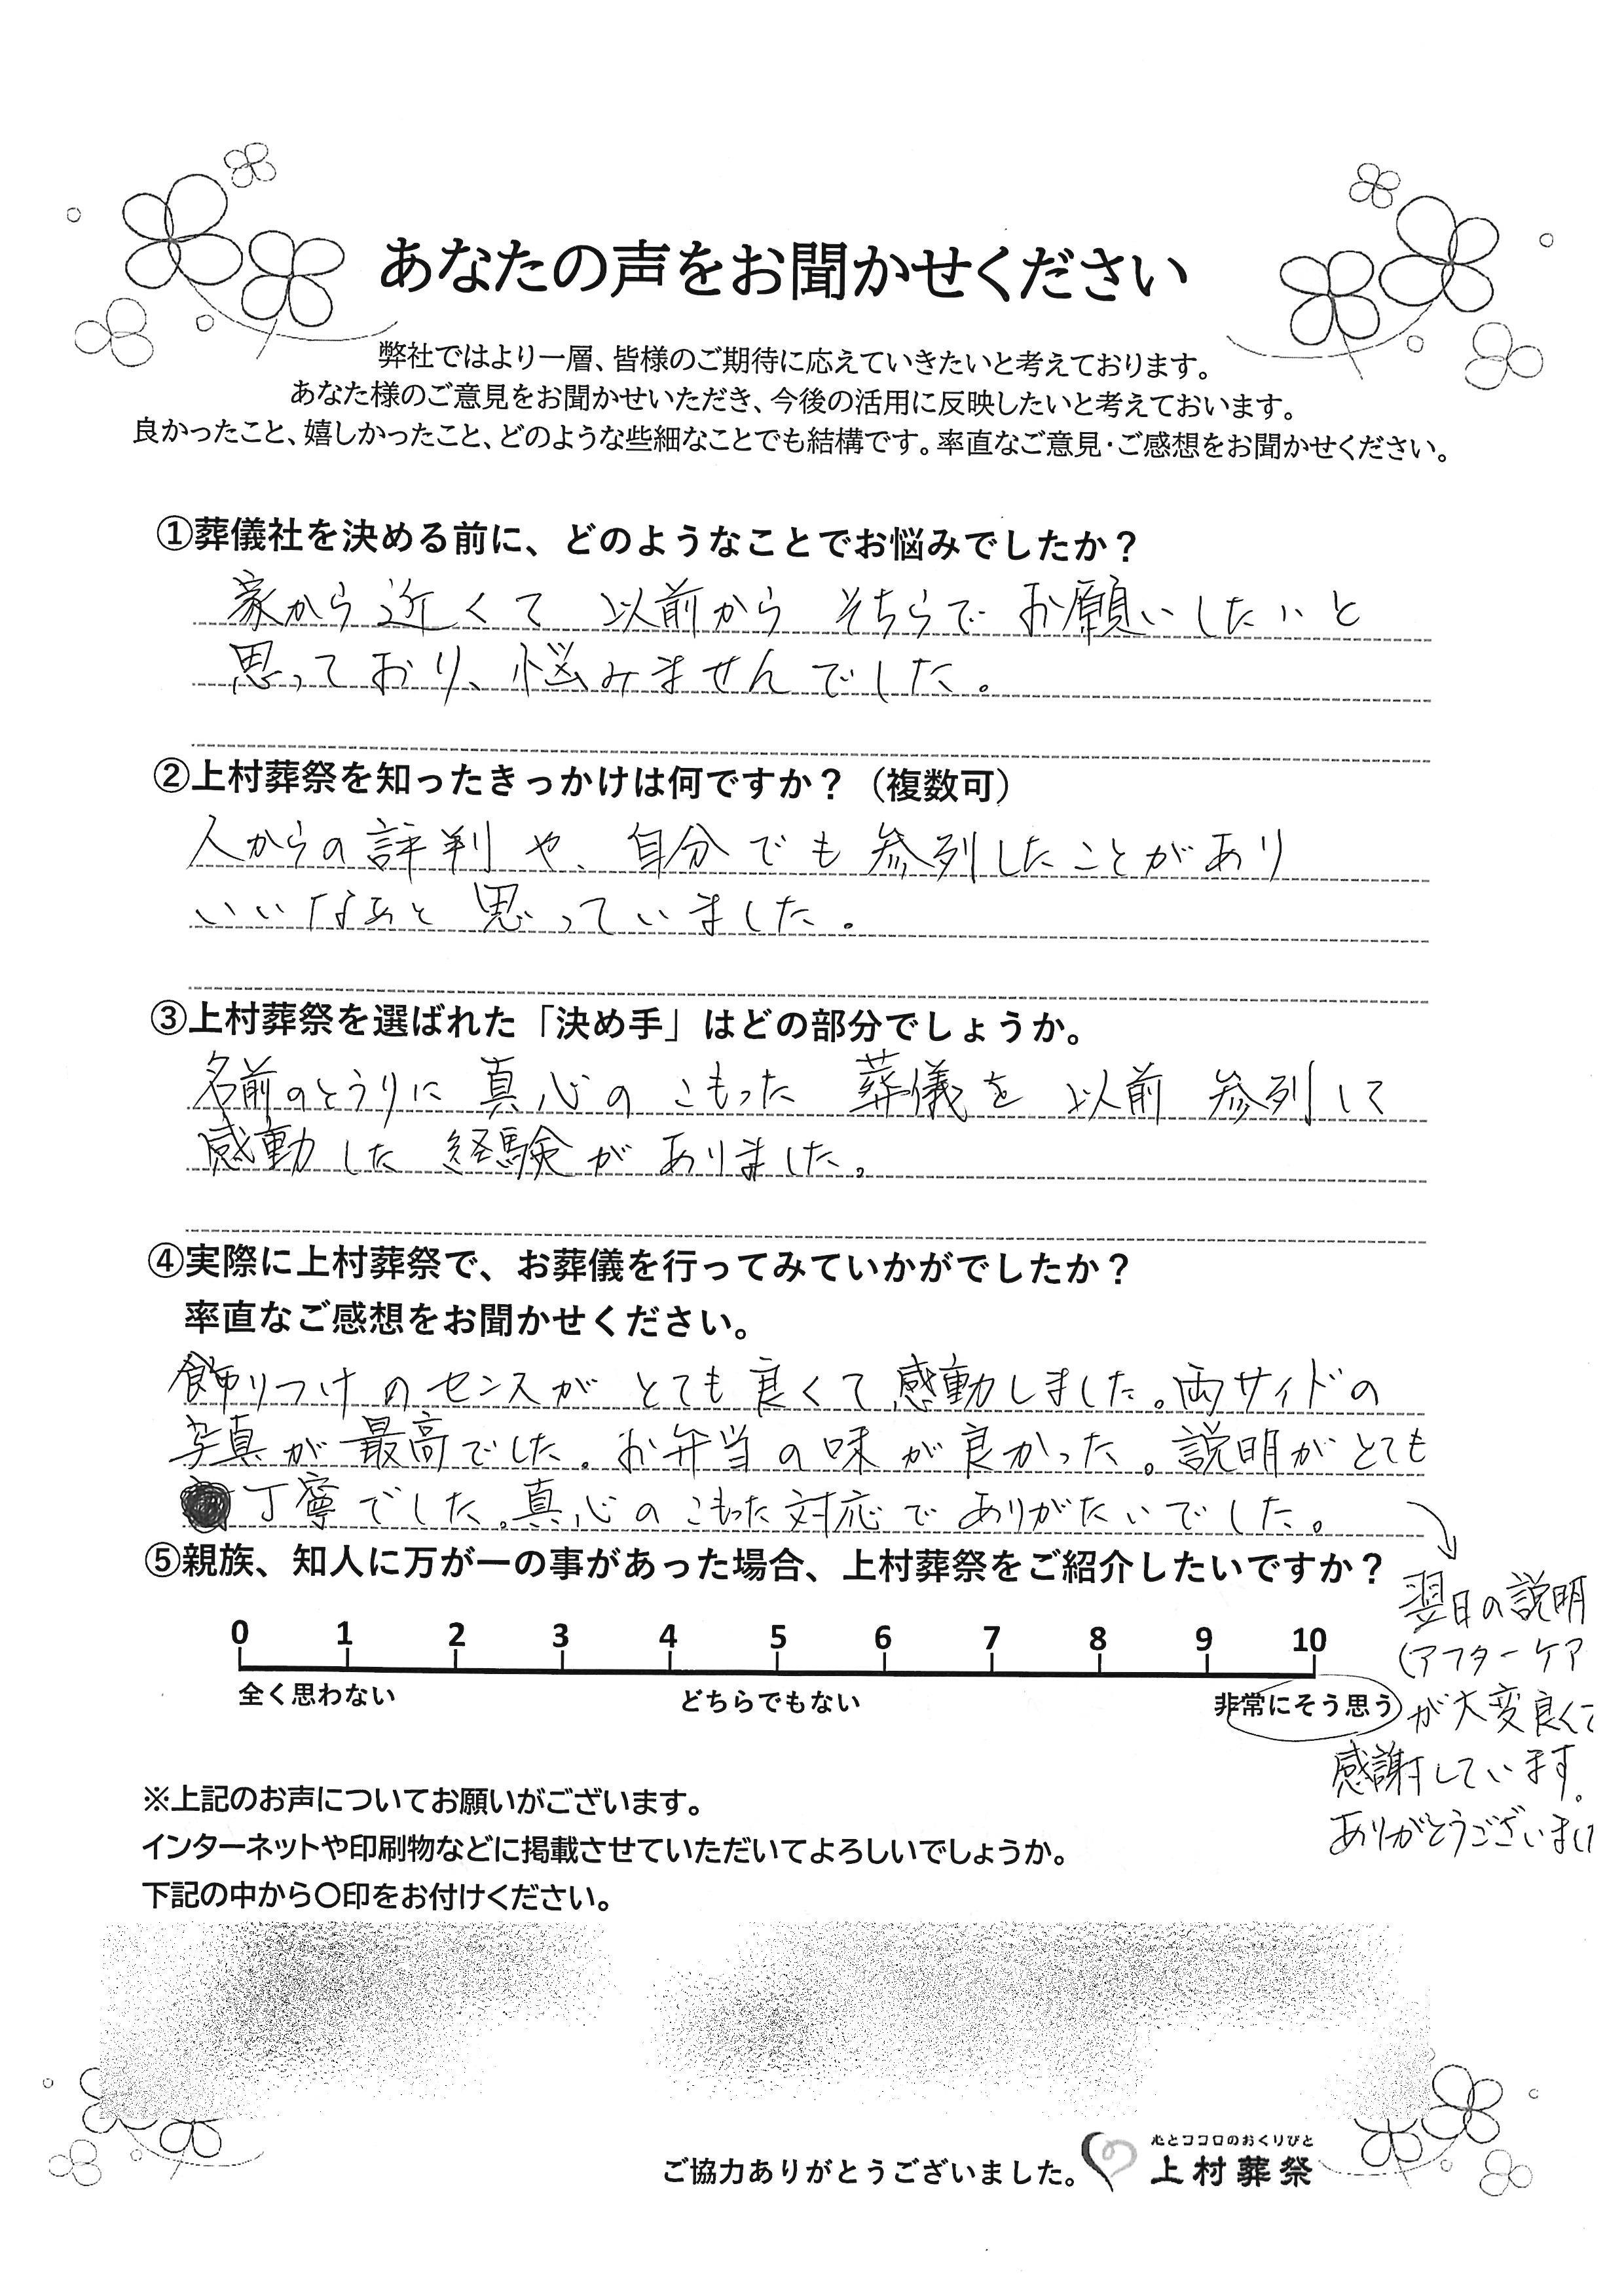 あなたの声をお聞かせください
弊社ではより一層、皆様のご期待に応えていきたいと考えております。
あなた様のご意見をお聞かせいただき、今後の活用に反映したいと考えておいます。
良かったこと、嬉しかったこと、どのような些細なことでも結構です。率直なご意見・ご感想をお聞かせください。
①葬儀社を決める前に、どのようなことでお悩みでしたか？
家から近くて 以前から そちらで お願いしたいと
思っており、悩みませんでした。
②上村葬祭を知ったきっかけは何ですか？（複数可）
人からの評判や、自分でも参列したことがあり
いいなぁと思っていました。
③上村葬祭を選ばれた「決め手」はどの部分でしょうか。
名前のとうりに 真心の こもった 葬儀を 以前 参列して
感動した 経験が ありました。
④実際に上村葬祭で、お葬儀を行ってみていかがでしたか？
率直なご感想をお聞かせください。
飾りつけのセンスが とても良くて感動しました。両サイドの
写真が最高でした。お弁当の味が良かった。説明がとても
丁寧でした。真心の こもった対応で ありがたいでした。
⑤親族、知人に万が一の事があった場合、上村葬祭をご紹介したいですか？
0 1 2 3 4 5 6 7 8 9 10
全く思わない どちらでもない 非常にそう思う
翌日の説明
(アフターケア
が大変良くて
感謝しています。
ありがとうございまし
※上記のお声についてお願いがございます。
インターネットや印刷物などに掲載させていただいてよろしいでしょうか。
下記の中から〇印をお付けください。
ご協力ありがとうございました。
心とココロのおくりびと
上村葬祭